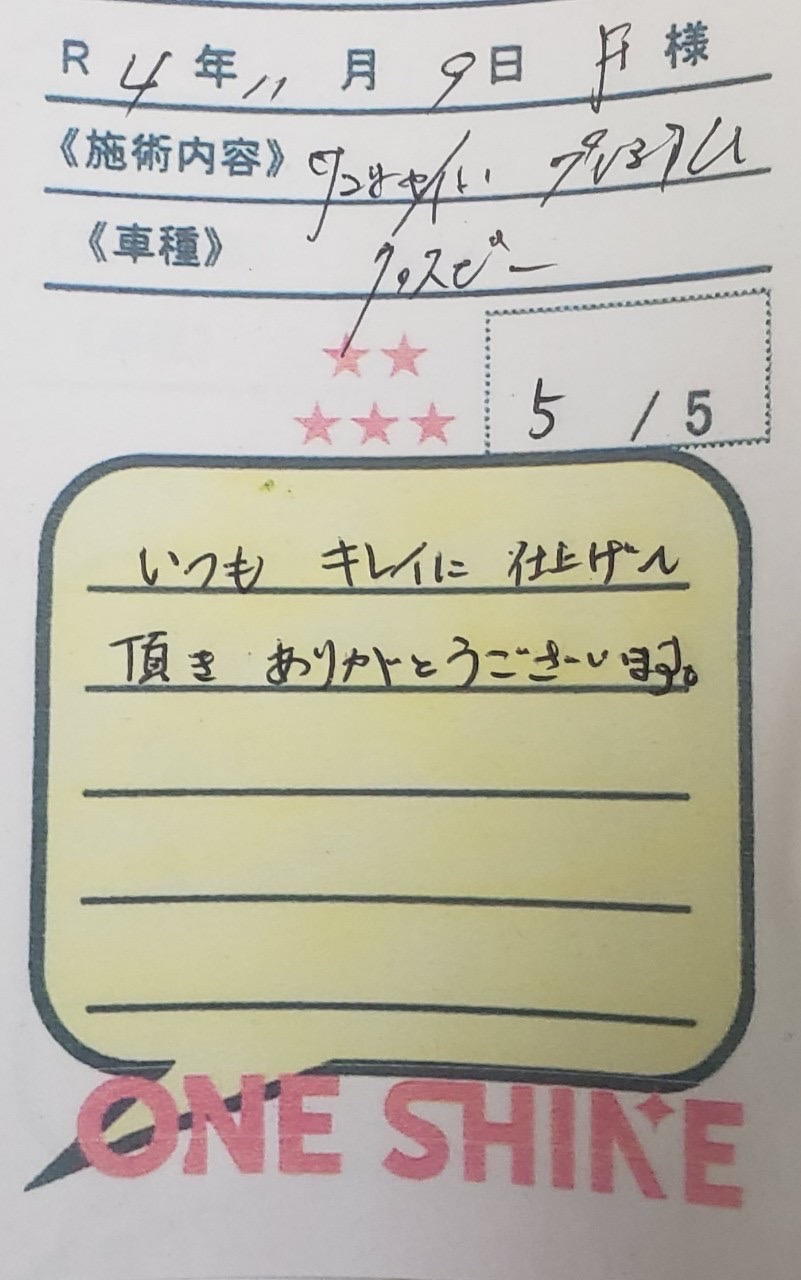 R 4年 11月 9日 様
《施術内容》 プレミアム
《車種》 クロスビー
5 / 5
いつも キレイに 仕上げて
頂き ありがとうございます。
ONE SHINE